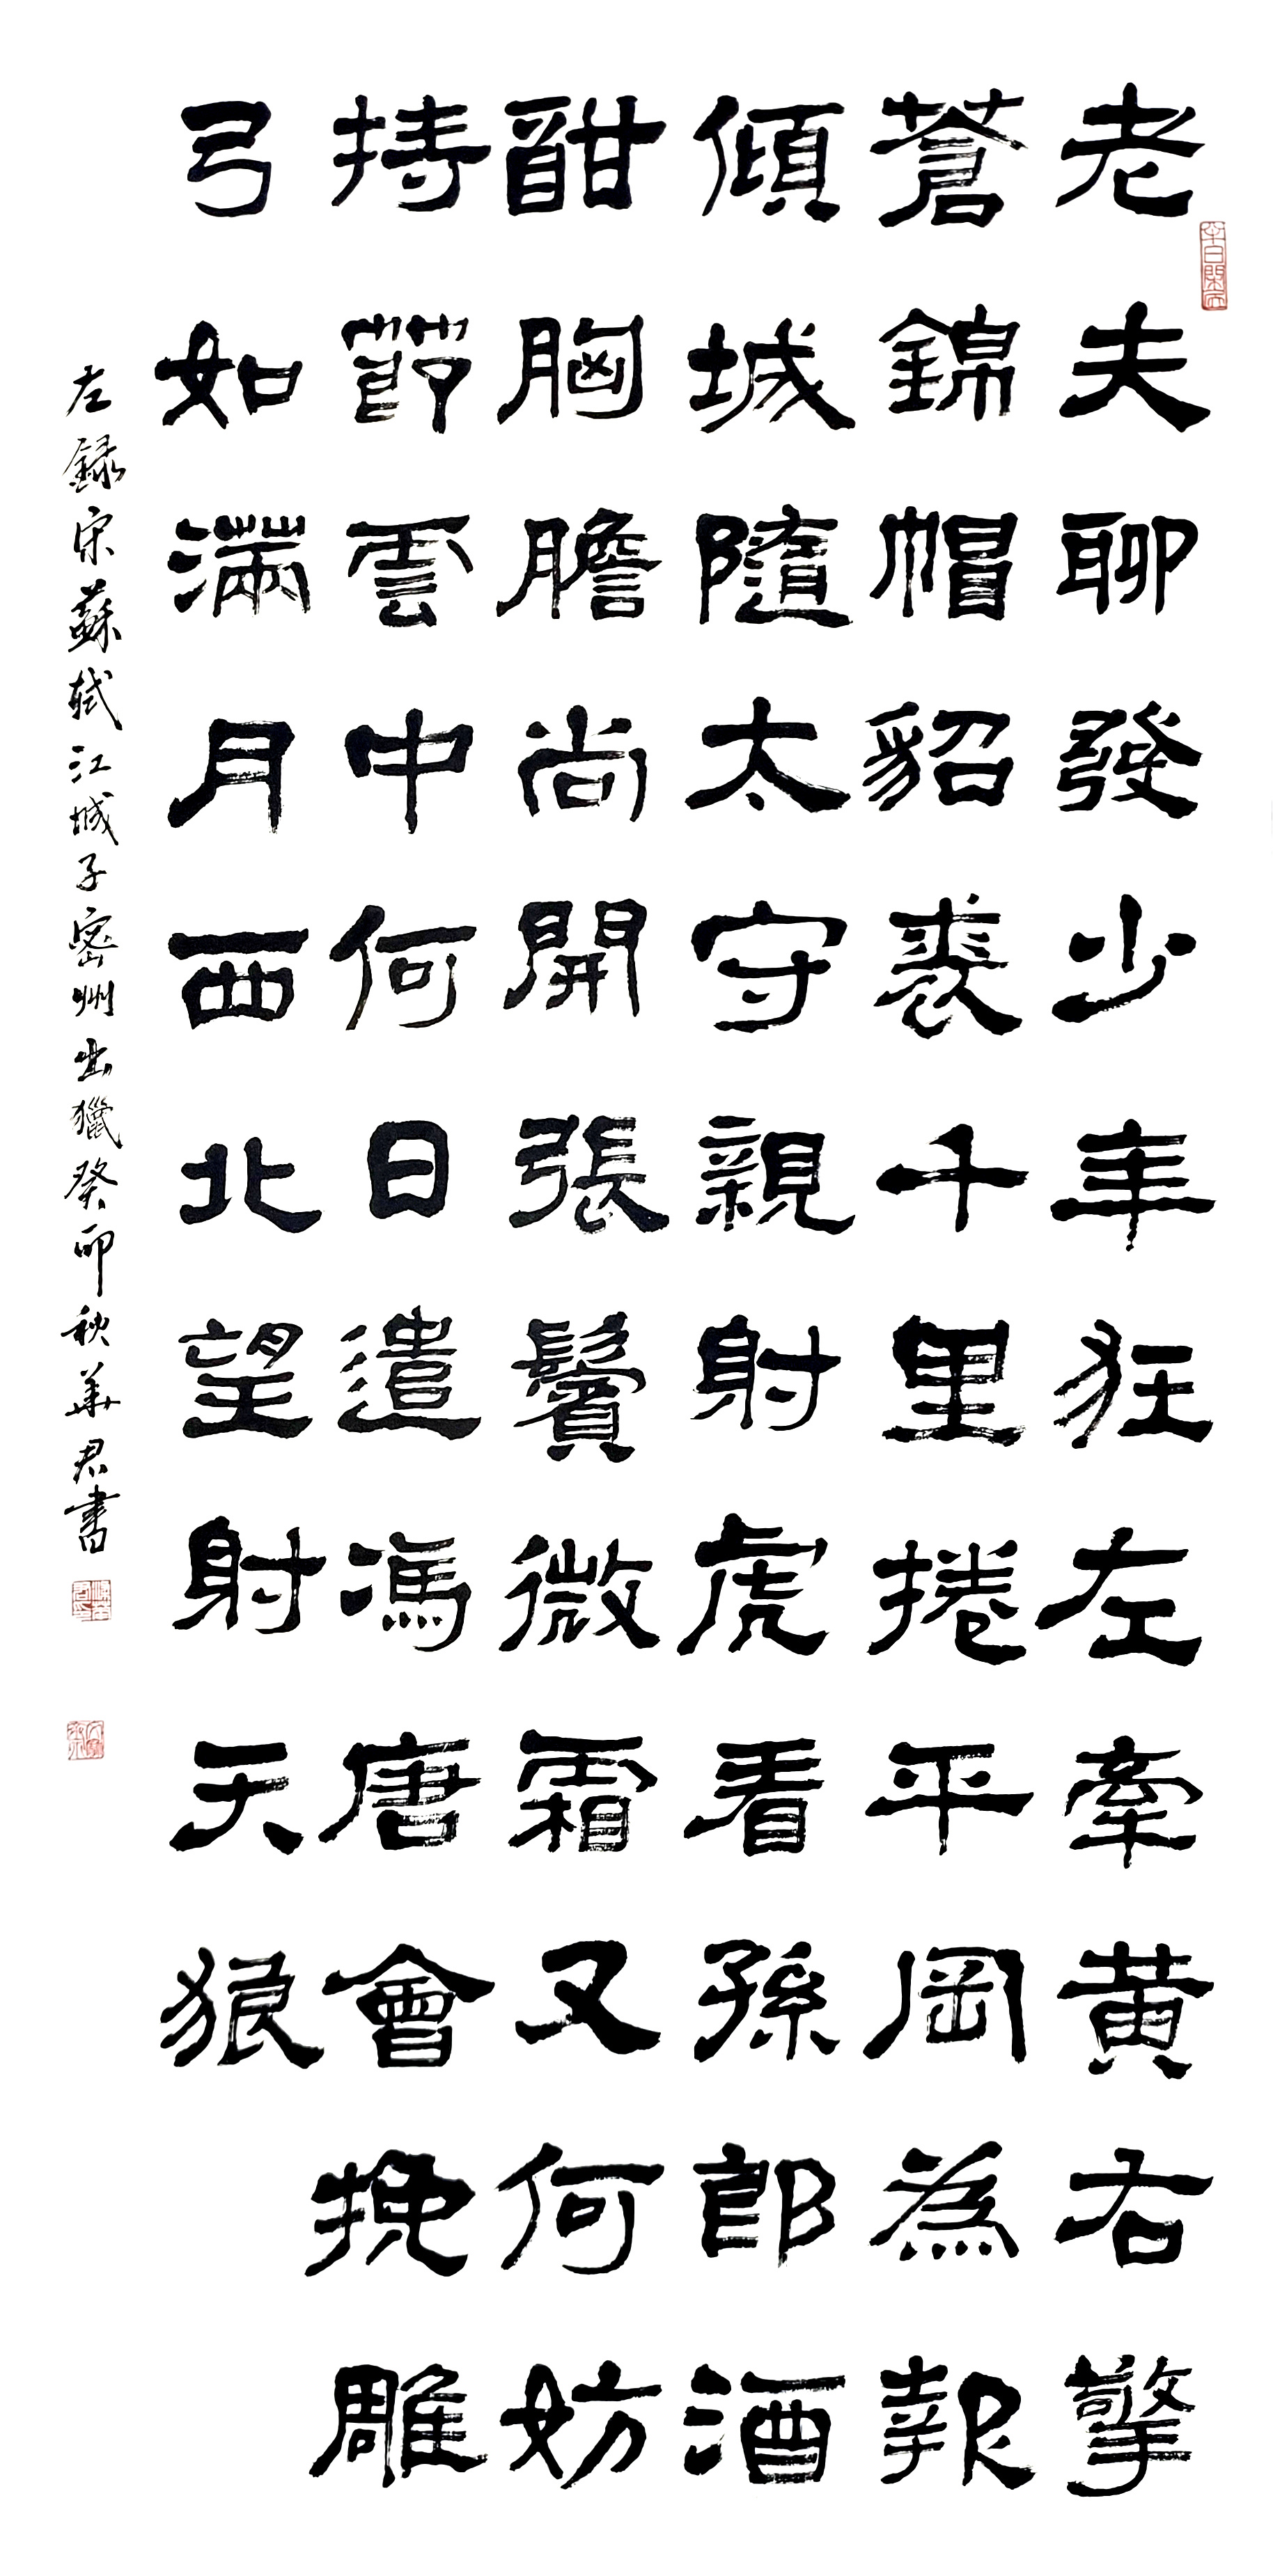 老夫聊發少年狂左牽黃右擎
蒼錦帽貂裘千里捲平岡為報
傾城隨太守親射虎看孫郎酒
酣胸膽尚開張鬢微霜又何妨
持節雲中何日遣馮唐會挽雕
弓如滿月西北望射天狼
左録宋蘇軾江城子密州出獵癸卯秋華君書